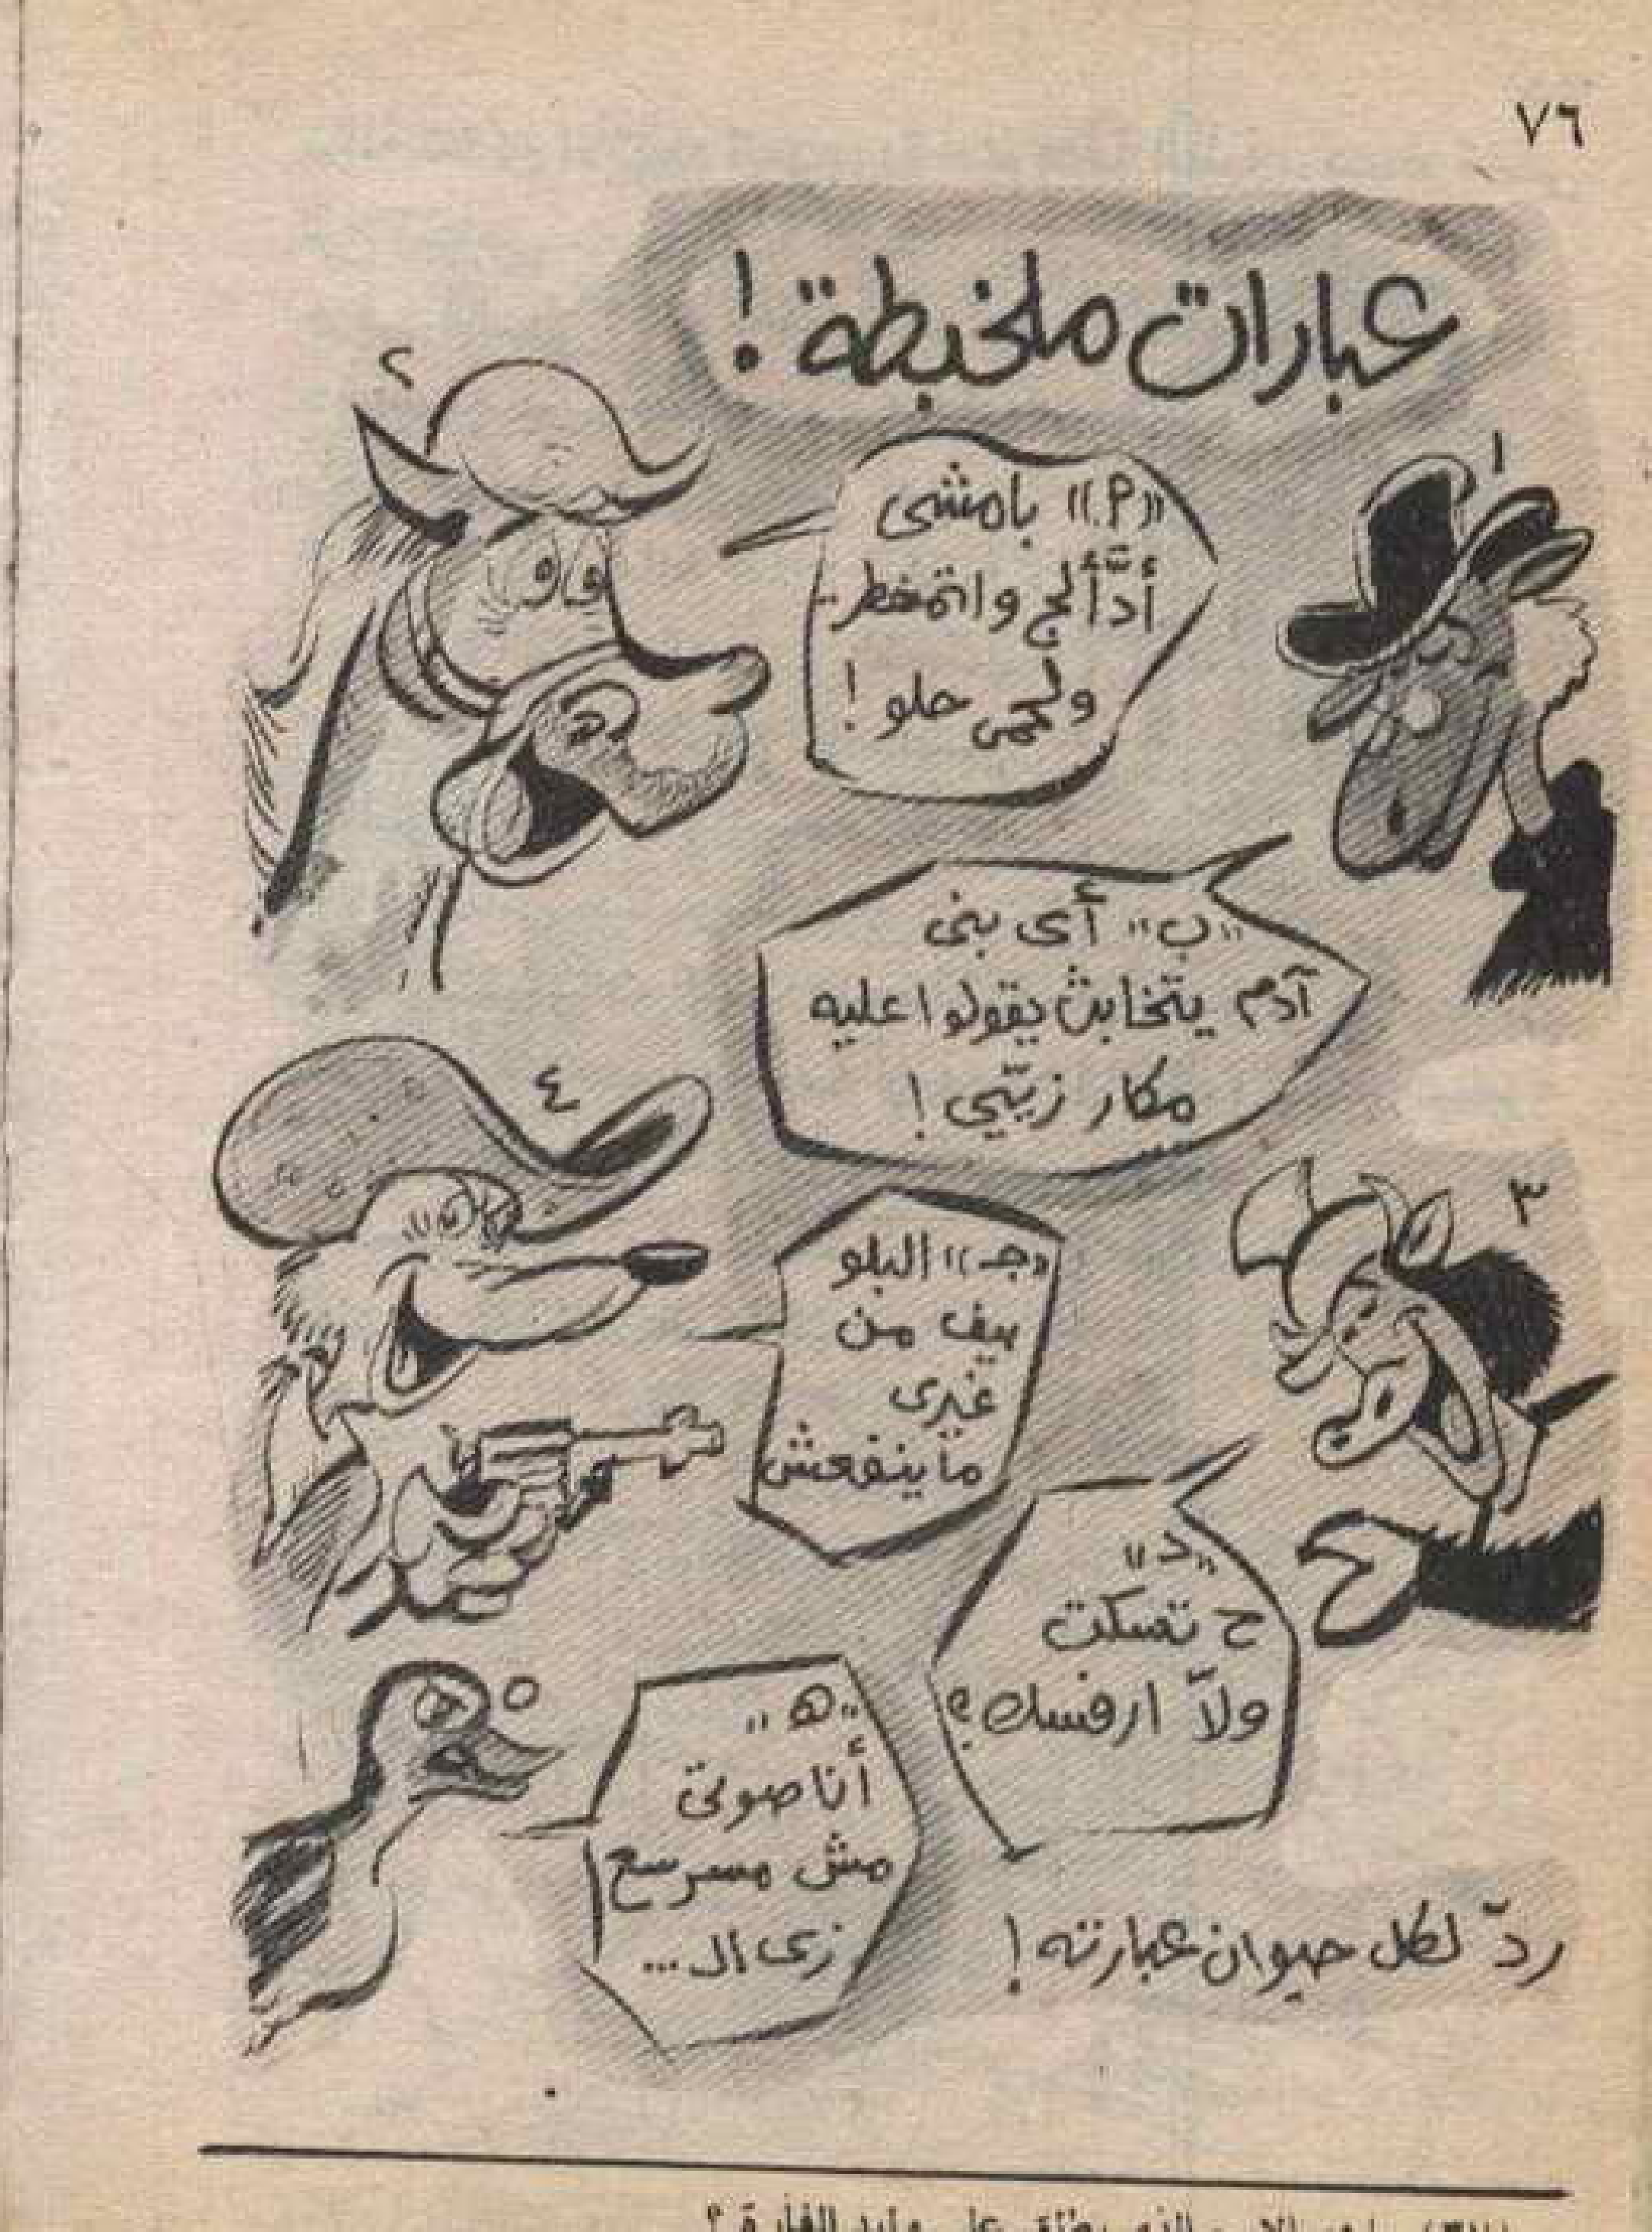 ٧٦
عبارات ملخبطة !
١
٢
«أ» بامشى
أدّألج واتمخطر ..
ولحمى حلو !
«ب» أى بنى
آدم يتخابث يقولوا عليه
مكار زيّي !
٣
٤
«جـ» البلو
بيف من
غيرى
ماينفعش
«د»
ح تسكت
ولاّ ارفسك ؟
٥
«هـ»
أنا صوتى
مش مسرسع
زى ال ...
ردّ لكل حيوان عبارته !
الذى يطلق على وليد الفأرة ؟